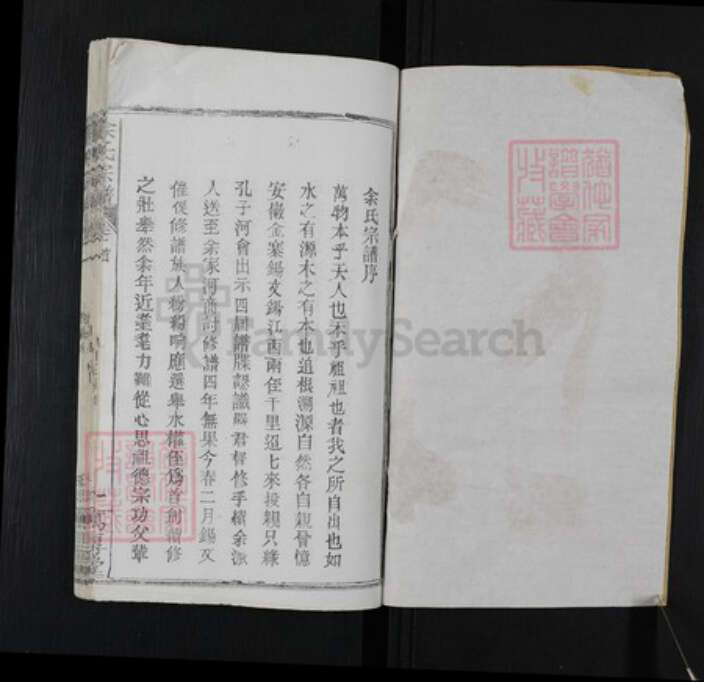 余氏宗譜序
萬物本乎天人也本乎祖祖也者我之所自出也如
水之有源木之有本也追根溯源自然各自親曾憶
安徽金寨錫文錫江西兩侄千里迢七來投親只緣
孔子河會出示四屆譜牒認識 君督修手續余派
人送至余家河商討修譜四年無果今春二月錫文
催促修譜族人紛紛响應選舉水權侄為首創續修
之壯舉然余年近耄耋力難從心思祖德宗功父輩
余氏宗譜
卷首
一
FamilySearch